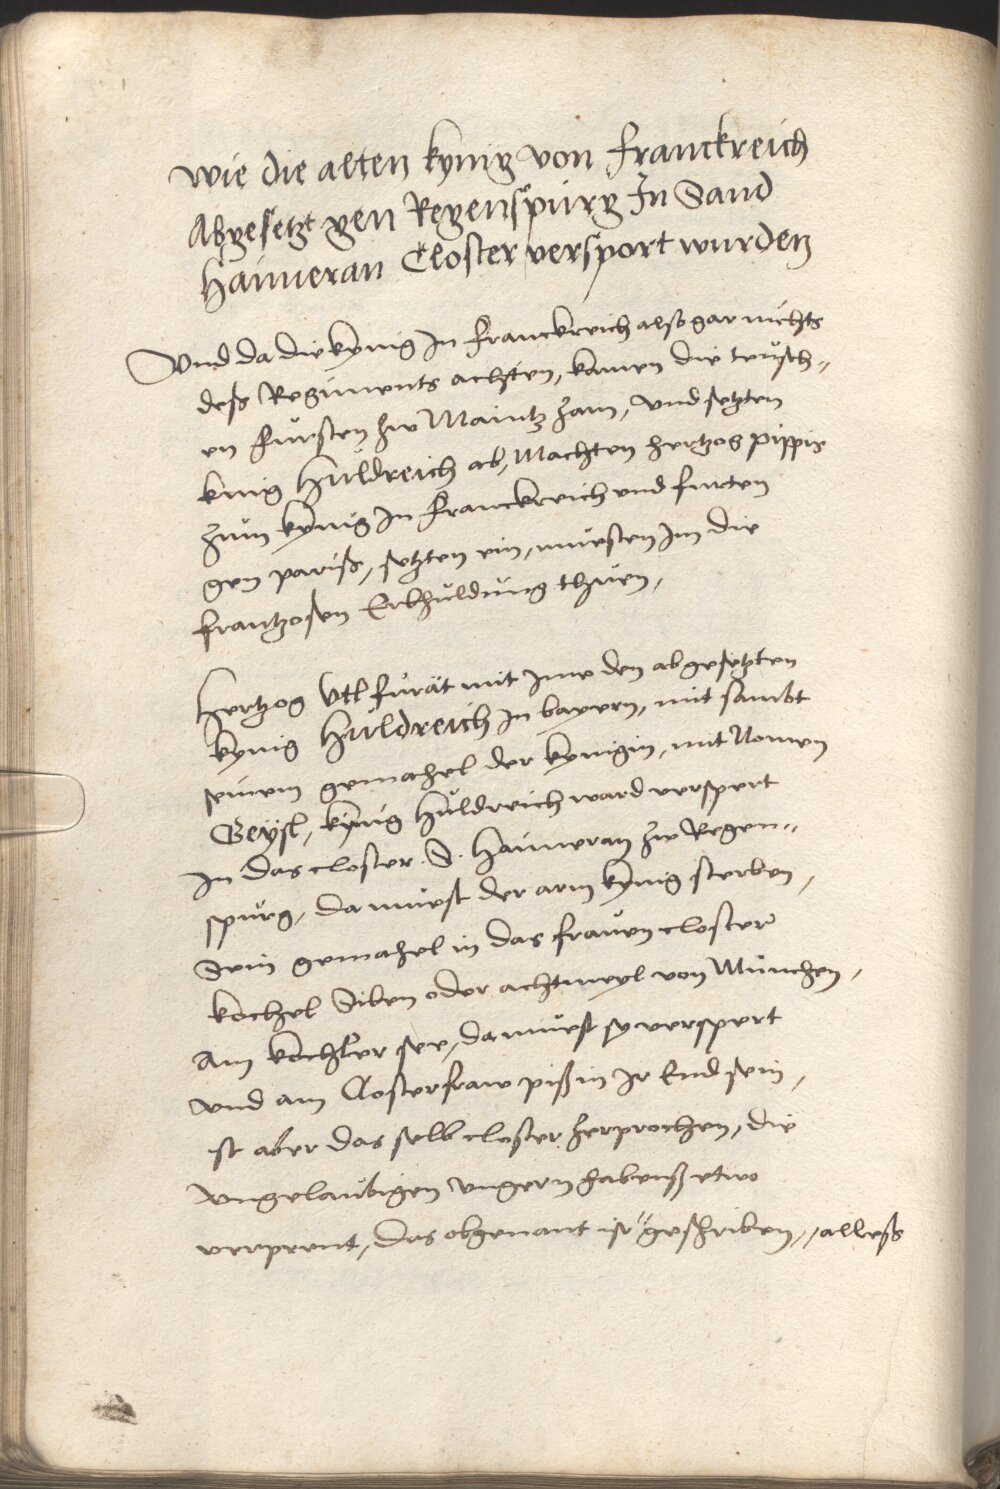 Wie die alten kynig von Franckreich
Abgesetzt gen Regenspurg In Sand
Haimeran Closter versport wurden
Vnd da die kynig In Franckreich also gar nichts
deß Regiments achsten, kamen die teutsch„
en Fürsten zw Maintz zam, vnd setzten
kinig Huldreich ab, Machten hertzog pippin
zum kynig In Franckreich vnd furten
gen pariß, setzten ein, muesten Im die
frantzosen Erbhuldung thuen,
Hertzog Vtl fürät mit Ime den abgesetzten
kynig Huldreich In bayern, mit sambt
seinem gemahel der kynigin, mit Nomen
Geysl, kynig Huldreich ward verspert
In das closter. S. Haimeran zw Regen„
spurg, da muest der arm kynig sterben,
Sein gemahel in das frauen closter
kochel Siben oder acht meyl von München,
Am kochler see, da muest sy verspert
vnd am Closterfraw piß in Ir End sein,
ist aber das selb closter zerprochen, die
vngelaubigen vngern habenß etwo
verprent, das obgenant ist geschriben,, alleß